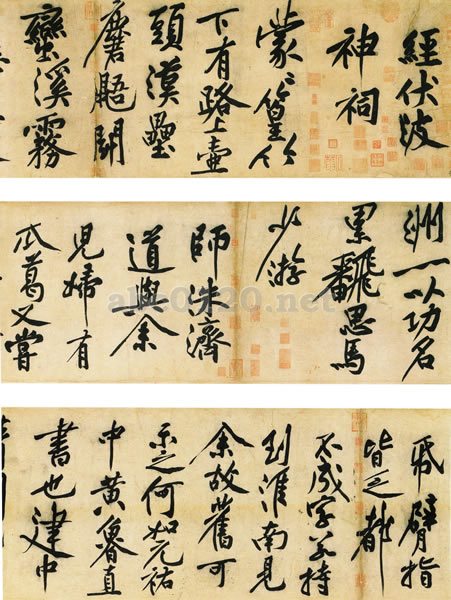 經伏波
神祠
蒙〻篁竹
下有路上壺
頭漢壘
麏鼯鬪
蠻溪霧
洲一以功名
累飜思馬
少游
師洙濟
道與余
兒婦有
瓜葛又嘗
紙臂指
皆乏都
不成字若持
到淮南見
余故舊可
示之何如元祐
中黄魯直
書也建中